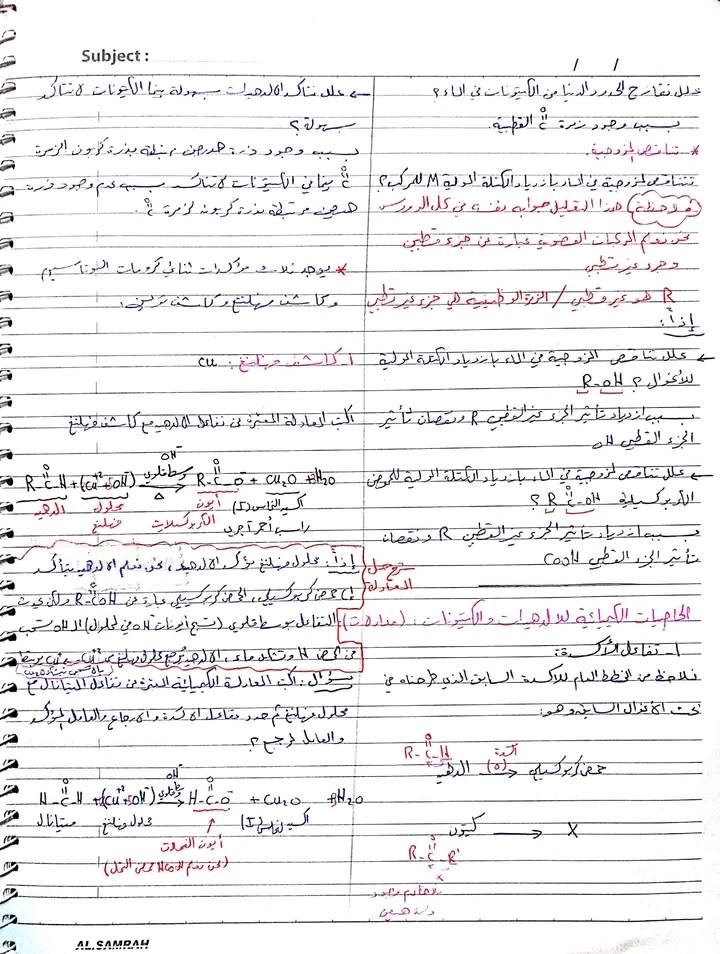 Subject :
/ /
علل تمازج الحدود الدنيا من الكيتونات في الماء؟
بسبب وجود زمرة C=O القطبية.
* تناقص المزوجية.
تتناقص المزوجية في الماء بازدياد الكتلة المولية M للمركب؟
ملاحظة هذا التعليل جوابه نفسه في كل الدروس
نحن نعلم المركبات العضوية عبارة عن جزء قطبي
وجزء غير قطبي
R هو غير قطبي / الزمرة الوظيفية هي جزء غير قطبي
إذاً:
← علل تناقص المزوجية في الماء بازدياد الكتلة المولية
للأغوال؟ R-OH
بسبب ازدياد تأثير الجزء غير القطبي R ونقصان تأثير
الجزء القطبي OH
← علل تناقص المزوجية في الماء بازدياد الكتلة المولية للحموض
الكربوكسيلية R-C(=O)-OH ؟
بسبب ازدياد تأثير الجزء غير القطبي R ونقصان
تأثير الجزء القطبي COOH
الخاصيات الكيميائية للألدهيدات والكيتونات: (معادلات)
1- تفاعل الأكسدة:
نلاحظ من المخطط العام للأكسدة السابق الذي طرحناه في
بحث الأغوال السابق وهو:
R-C(=O)-H
ألدهيد → أكسدة (O) حمض كربوكسيلي
كيتون → X
R-C(=O)-R'
X
← علل تتأكسد الألدهيدات بسهولة بينما الكيتونات لا تتأكد
بسهولة؟
بسبب وجود ذرة هدروجين مرتبطة بذرة كربون الزمرة
C=O بينما في الكيتونات لا تتأكسد بسبب عدم وجود ذرة
هدروجين مرتبطة بذرة كربون لزمرة C=O.
* يوجد ثلاث مؤكسدات ثنائي كرومات البوتاسيوم
وكاشف فهلنغ وكاشف تولن:
1- كاشف فهلنغ: Cu
اكتب المعادلة المعبرة عن تفاعل الألدهيد مع كاشف فهلنغ
R-C(=O)-H + (Cu²⁺+5OH⁻) → وسط قلوي OH⁻ Δ R-C(=O)-O⁻ + Cu₂O + 3H₂O
ألدهيد محلول فهلنغ أيون الكربوكسيلات أكسيد النحاس (I)
راسب أحمر آجري
شرح المعادلة
إذاً: محلول فهلنغ مؤكسد الألدهيد، نحن نعلم الألدهيد يتأكسد
إلى حمض كربوكسيلي، الحمض كربوكسيلي عبارة عن R-C(=O)-OH ولكن بحيث
التفاعل بوسط قلوي (تسبح أيونات OH⁻ في المحلول) الـ OH تسحب
من الحمض H وتشكل ماء، الألدهيد يُرجع محلول فهلنغ من
سؤال: اكتب المعادلة الكيميائية المعبرة عن تفاعل الميتانال مع
محلول فهلنغ ثم حدد تفاعل الأكسدة والإرجاع والعامل المؤكسد
والعامل المرجع؟
H-C(=O)-H + (Cu²⁺+5OH⁻) → قلوي OH⁻ H-C(=O)-O⁻ + Cu₂O + 3H₂O
ميتانال محلول فهلنغ أكسيد النحاس (I)
أيون النملات
(نحن نعلم HCOOH حمض النمل)
AL.SAMRAH